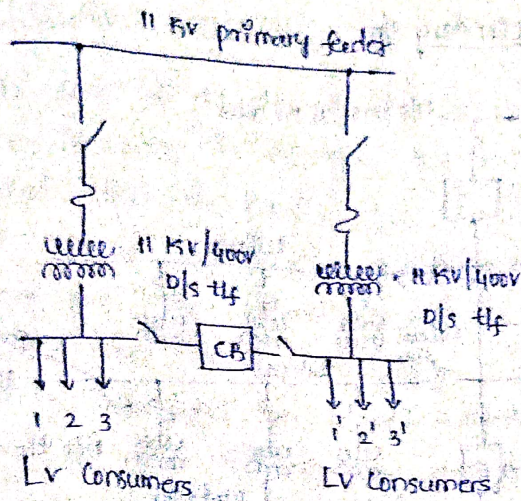 11 KV primary feeder
11 KV/400V
D/s t/f
11 KV/400V
D/s t/f
CB
1 2 3
1' 2' 3'
LV Consumers
LV Consumers